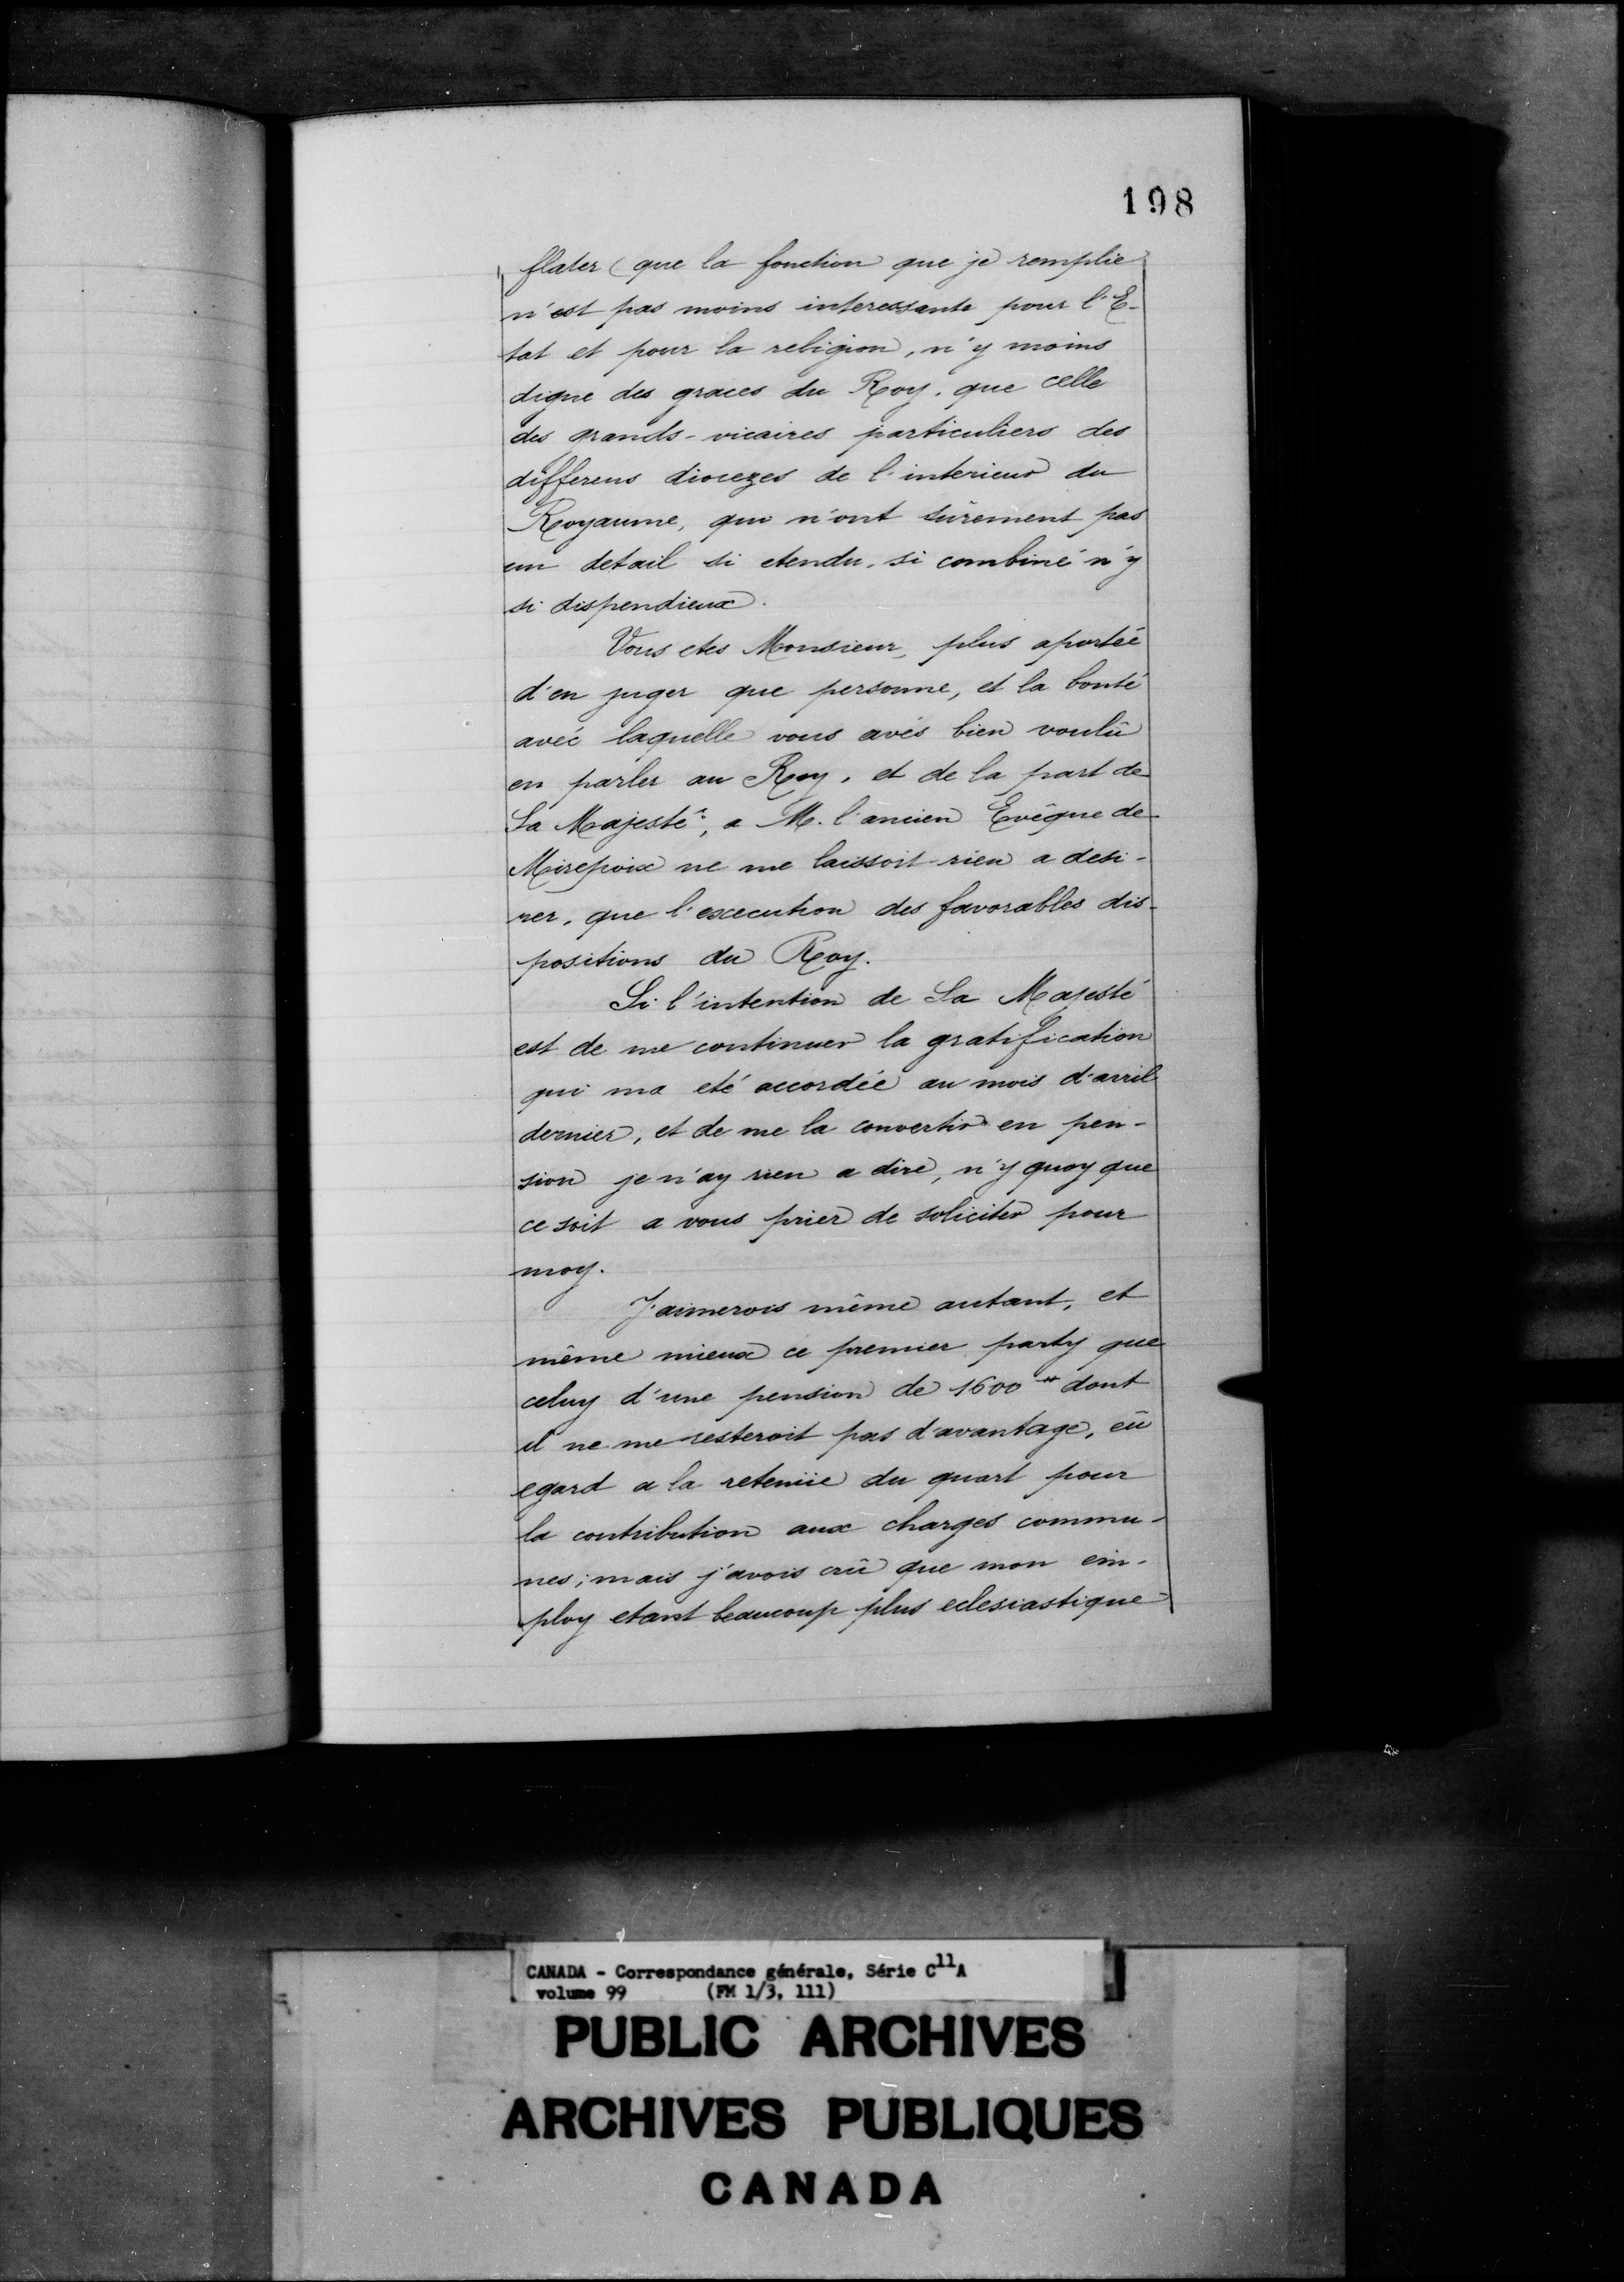 198
flater (que la fonction que je remplie
n'est pas moins interessante pour l'E-
tat et pour la religion, n'y moins
digne des graces du Roy, que celle
des grands-vicaires particuliers des
differens diocezes de l'interieur du
Royaume, qui n'ont sûrement pas
un detail si etendu, si combiné n'y
si dispendieux.
Vous etes Monsieur, plus aportée
d'en juger que personne, et la bonté
avéc laquelle vous avés bien voulû
en parler au Roy, et de la part de
Sa Majesté, a M. l'ancien Evêque de
Mirepoix ne me laissoit rien a desi-
rer, que l'execution des favorables dis-
positions du Roy.
Si l'intention de Sa Majesté
est de me continuer la gratification
qui ma eté accordée au mois d'avril
dernier, et de me la convertir en pen-
sion je n'ay rien a dire, n'y quoy que
ce soit a vous prier de soliciter pour
moy.
J'aimerois même autant, et
même mieux ce premier party que
celuy d'une pension de 1600 # dont
il ne me resteroit pas d'avantage, eû
egard a la retenüe du quart pour
la contribution aux charges commu-
nes; mais j'avois crû que mon em-
ploy etant beaucoup plus eclesiastique
CANADA - Correspondance générale, Série C11A
volume 99 (FM 1/3, 111)
PUBLIC ARCHIVES
ARCHIVES PUBLIQUES
CANADA